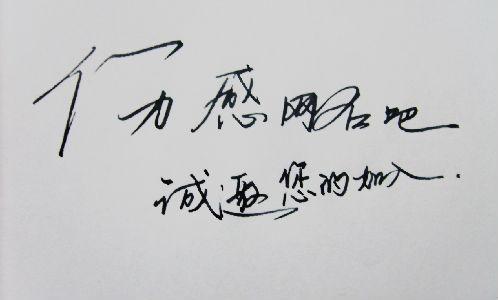 伤感网名吧
诚邀您的加入.